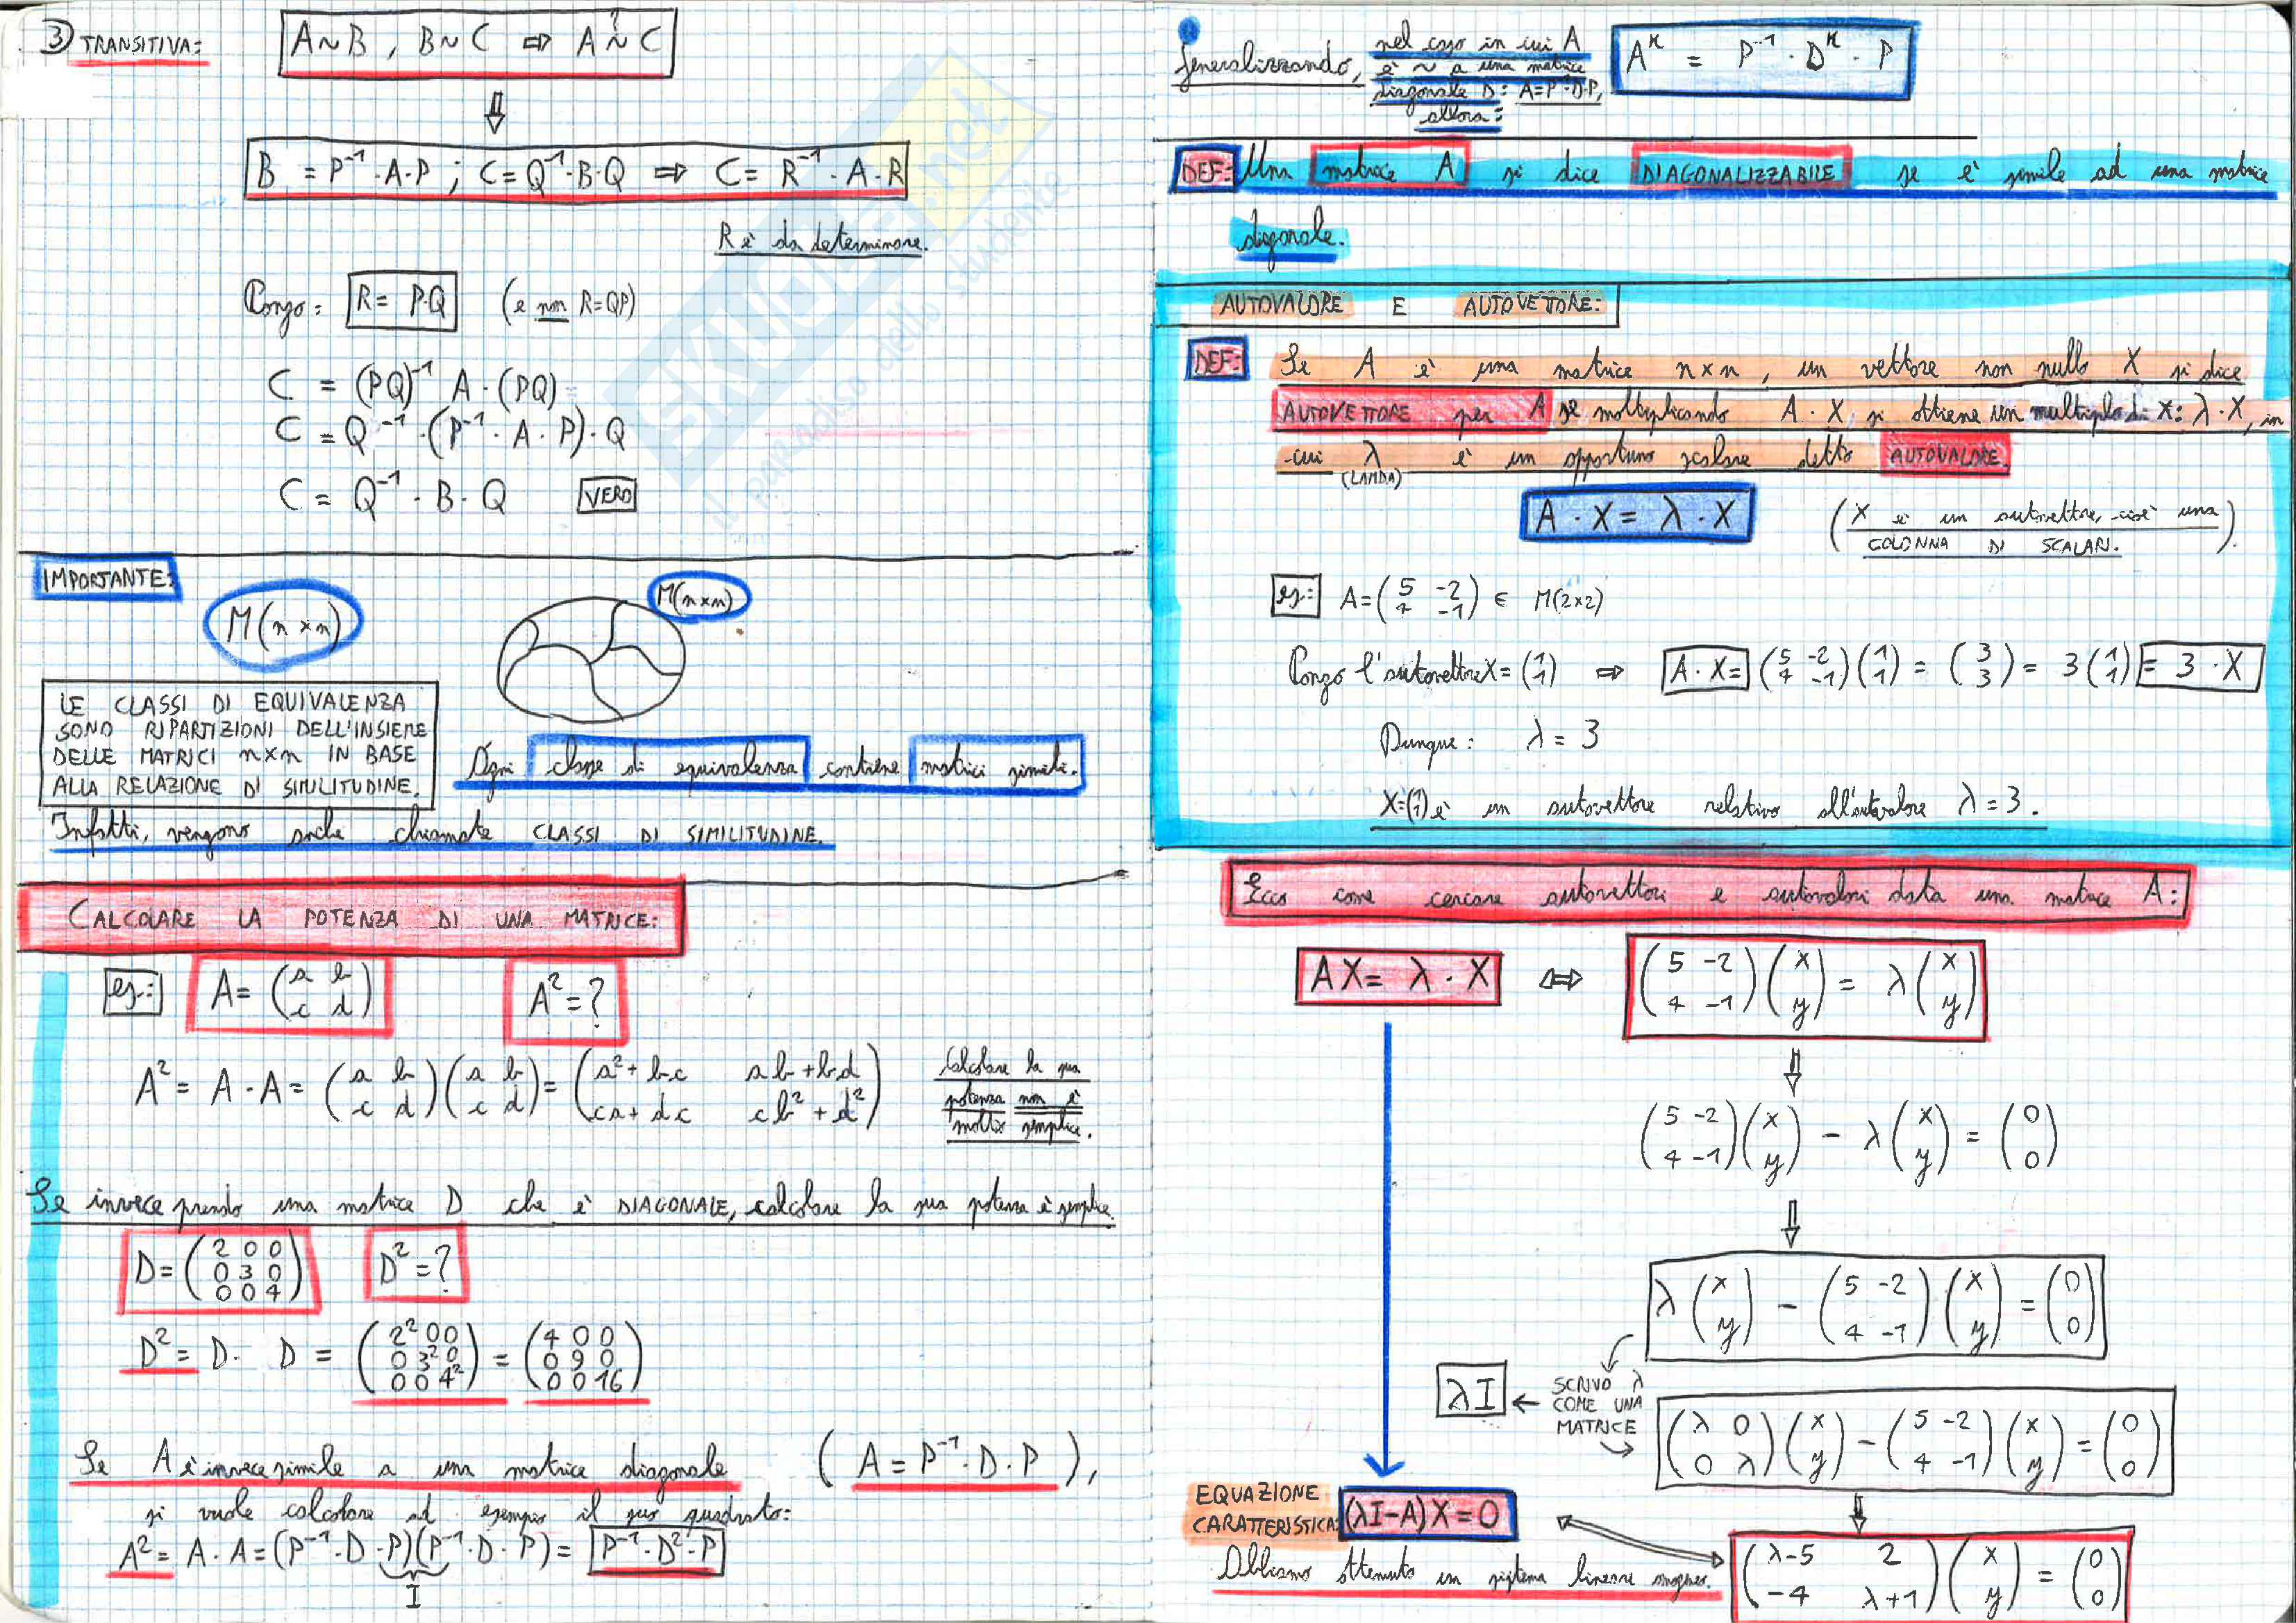 ③ TRANSITIVA: A∼B , B∼C ⇒ A ∼? C
⇓
B = P⁻¹·A·P ; C = Q⁻¹·B·Q ⇒ C = R⁻¹·A·R
R è da determinare.
Pongo: R = P·Q (e non R=QP)
C = (PQ)⁻¹ A·(PQ)
C = Q⁻¹·(P⁻¹·A·P)·Q
C = Q⁻¹·B·Q VERO
IMPORTANTE:
M(n×n)
M(n×n)
LE CLASSI DI EQUIVALENZA
SONO RIPARTIZIONI DELL'INSIEME
DELLE MATRICI n×n IN BASE
ALLA RELAZIONE DI SIMILITUDINE.
Ogni classe di equivalenza contiene matrici simili.
Infatti, vengono anche chiamate CLASSI DI SIMILITUDINE.
CALCOLARE LA POTENZA DI UNA MATRICE:
es: A = (a b / c d) A² = ?
A² = A·A = (a b / c d)(a b / c d) = (a²+bc ab+bd / ca+dc cb²+d²)
Calcolare la sua
potenza non è
molto semplice.
Se invece prendo una matrice D che è DIAGONALE, calcolare la sua potenza è semplice.
D = (2 0 0 / 0 3 0 / 0 0 4) D² = ?
D² = D· D = (2² 0 0 / 0 3² 0 / 0 0 4²) = (4 0 0 / 0 9 0 / 0 0 16)
Se A è invece simile a una matrice diagonale (A = P⁻¹·D·P),
si vuole calcolare ad esempio il suo quadrato:
A² = A·A = (P⁻¹·D·P)(P⁻¹·D·P) = P⁻¹·D²·P
I
Generalizzando, nel caso in cui A
è ∼ a una matrice
diagonale D: A=P⁻¹·D·P,
allora:
Aᴷ = P⁻¹·Dᴷ·P
DEF: Una matrice A si dice DIAGONALIZZABILE se è simile ad una matrice
diagonale.
AUTOVALORE E AUTOVETTORE:
DEF: Se A è una matrice n×n, un vettore non nullo X si dice
AUTOVETTORE per A se moltiplicando A·X si ottiene un multiplo di X: λ·X, in
cui λ è un opportuno scalare detto AUTOVALORE.
(LAMDA)
A·X = λ·X
(X è un autovettore, cioè una
COLONNA DI SCALARI.)
es: A = (5 -2 / 4 -1) ∈ M(2×2)
Pongo l'autovettore X = (1 / 1) ⇒ A·X = (5 -2 / 4 -1)(1 / 1) = (3 / 3) = 3(1 / 1) = 3·X
Dunque: λ = 3
X=(1 / 1) è un autovettore relativo all'autovalore λ = 3.
Ecco come cercare autovettori e autovalori data una matrice A:
AX = λ·X ⇔ (5 -2 / 4 -1)(x / y) = λ(x / y)
⇓
(5 -2 / 4 -1)(x / y) - λ(x / y) = (0 / 0)
⇓
λ(x / y) - (5 -2 / 4 -1)(x / y) = (0 / 0)
λI ← SCRIVO λ
COME UNA
MATRICE
(λ 0 / 0 λ)(x / y) - (5 -2 / 4 -1)(x / y) = (0 / 0)
⇓
EQUAZIONE
CARATTERISTICA: (λI-A)X=0 ⇔ (λ-5 2 / -4 λ+1)(x / y) = (0 / 0)
Abbiamo ottenuto un sistema lineare omogeneo.
SKUOLA.net
il paradiso dello studente